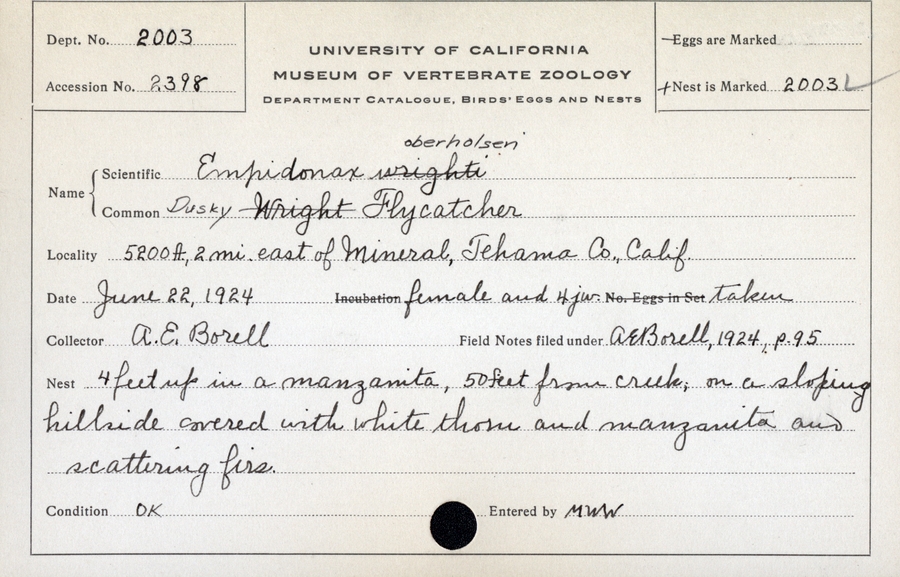 Dept. No. 2003
Accession No. 2398
UNIVERSITY OF CALIFORNIA
MUSEUM OF VERTEBRATE ZOOLOGY
DEPARTMENT CATALOGUE, BIRDS' EGGS AND NESTS
—Eggs are Marked
+Nest is Marked 2003
oberholseri
Name
Scientific Empidonax wrighti
Common Dusky Wright Flycatcher
Locality 5200ft, 2 mi. east of Mineral, Tehama Co., Calif.
Date June 22, 1924 Incubation female and 4 juv. No. Eggs in Set taken
Collector A.E. Borell Field Notes filed under AEBorell, 1924, p.95
Nest 4 feet up in a manzanita, 50 feet from creek; on a sloping
hillside covered with white thorn and manzanita and
scattering firs.
Condition OK Entered by MWW